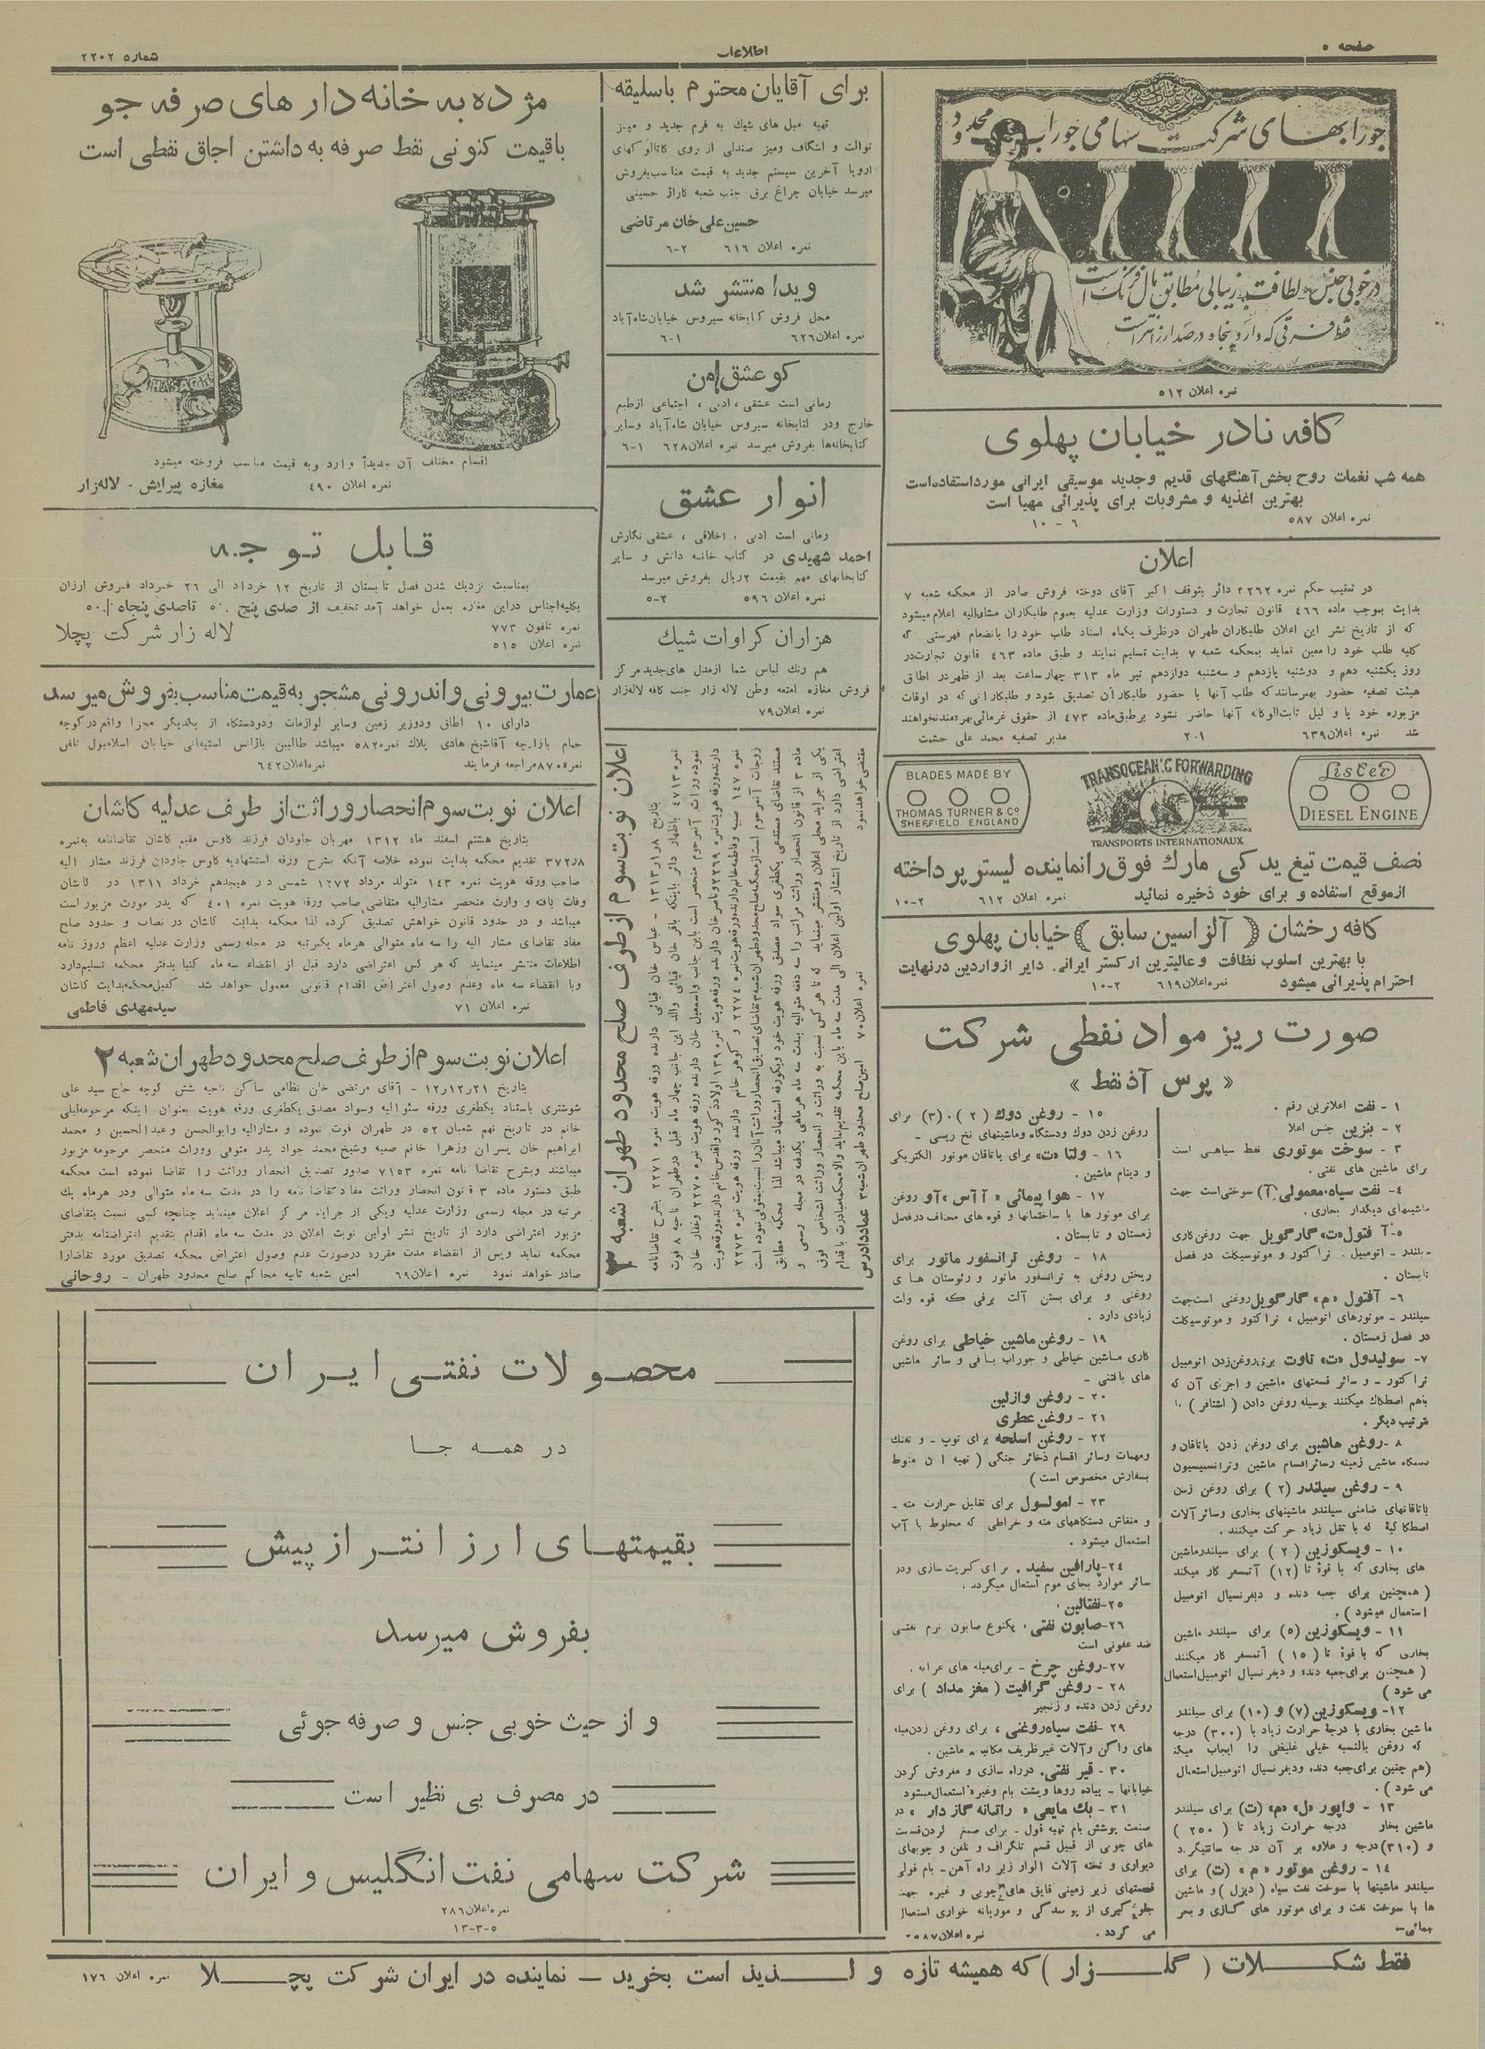 صفحه ٥
اطلاعات
شماره ۲۲۰۲
جورابهای شرکت سهامی جوراب محدود
در خوبی جنس و لطافت و زیبائی مطابق مال فرنگ است
فقط فرقی که دارد پنجاه درصد ارزانتر است
نمره اعلان ٥١٢
کافه نادر خیابان پهلوی
همه شب نغمات روح بخش آهنگهای قدیم وجدید موسیقی ایرانی مورد استفاده است
بهترین اغذیه و مشروبات برای پذیرائی مهیا است
نمره اعلان ٥٨٧ ٦ - ١٠
اعلان
در تعقیب حکم نمره ۲۲٦۲ دائر بتوقف اکبر آقای دوخته فروش صادر از محکمه شعبه ۷
بدایت بموجب ماده ٤٦٦ قانون تجارت و دستورات وزارت عدلیه بعموم طلبکاران مشارالیه اعلام میشود
که از تاریخ نشر این اعلان طلبکاران طهران درظرف یکماه اسناد طلب خود را بانضمام فهرستی که
کلیه طلب خود را معین نماید بمحکمه شعبه ۷ بدایت تسلیم نمایند و طبق ماده ٤٦٣ قانون تجارت در
روز یکشنبه دهم و دوشنبه یازدهم و سه‌شنبه دوازدهم تیر ماه ۳۱۳ چهار ساعت بعد از ظهر در اطاق
هیئت تصفیه حضور بهم رسانند که طلب آنها با حضور طلبکاران تصدیق شود و طلبکارانی که در اوقات
مزبوره خود یا وکیل ثابت‌الوکاله آنها حاضر نشود برطبق ماده ٤٧٣ از حقوق غرمائی بهره‌مند نخواهند
شد نمره اعلان ٦٣٩ ٢-١ مدیر تصفیه محمد علی حشمت
BLADES MADE BY
THOMAS TURNER & Co
SHEFFIELD. ENGLAND
TRANSOCEANIC FORWARDING
TRANSPORTS INTERNATIONAUX
Lister
DIESEL ENGINE
نصف قیمت تیغ یدکی مارک فوق را نماینده لیستر پرداخته
از موقع استفاده و برای خود ذخیره نمائید نمره اعلان ٦١٢ ٢-١٠
کافه رخشان (آلزاسین سابق) خیابان پهلوی
با بهترین اسلوب نظافت و عالیترین ارکستر ایرانی. دایر از واردین در نهایت
احترام پذیرائی میشود نمره اعلان ٦١٩ ٢-١٠
صورت ریز مواد نفطی شرکت
« پرس آذ نفط »
١ - نفت اعلاترین رقم .
٢ - بنزین جنس اعلا
٣ - سوخت موتوری نفط سیاهی است
برای ماشین های نفتی .
٤- نفت سیاه معمولی (آ) سوختی است جهت
ماشینهای دیگدار بخاری.
٥- آفتول «ت» گارگویل جهت روغن کاری
سیلندر - اتومبیل . تراکتور و موتوسیکلت در فصل
تابستان .
٦- آفتول «م» گارگویل روغنی است جهت
سیلندر - موتورهای اتومبیل ، تراکتور و موتوسیکلت
در فصل زمستان .
٧- سولیدول «ت» تاوت برای روغن زدن اتومبیل
تراکتور - و سائر قسمتهای ماشین و اجزای آن که
باهم اصطکاک میکنند بوسیله روغن دادن ( اشتافر ) با
ترتیب دیگر .
٨ - روغن ماشین برای روغن زدن یاتاقان و
دستگاه ماشین زمینه و سائر اقسام ماشین و ترانسمیسیون
٩ - روغن سیلندر (٢) برای روغن زدن
یاتاقانهای ضامنی سیلندر ماشینهای بخاری و سائر آلات
اصطکاکیه که با ثقل زیاد حرکت میکنند .
١٠ - ویسکوزین (٢) برای سیلندر ماشین
های بخاری که با قوه تا (١٢) آتمسفر کار میکند
(همچنین برای جعبه دنده و دیفرنسیال اتومبیل
استعمال میشود) .
١١ - ویسکوزین (٥) برای سیلندر ماشین
بخاری که با قوه تا (١٥) آتمسفر کار میکنند
(همچنین برای جعبه دنده و دیفرنسیال اتومبیل استعمال
می شود)
١٢- ویسکوزین (٧) و (١٠) برای سیلندر
ماشین بخاری با درجه حرارت زیاد با (٣٠٠) درجه
که روغن بالنسبه خیلی غلیظی را ایجاب میکند
(هم چنین برای جعبه دنده و دیفرنسیال اتومبیل استعمال
می شود) .
١٣ - واپور «ل» «م» (ت) برای سیلندر
ماشین بخار درجه حرارت زیاد تا (٢٥٠)
و (٣١٠) درجه و علاوه بر آن درجه سانتیگراد
١٤ - روغن موتور «م» (ت) برای
سیلندر ماشینها با سوخت نفت سیاه (دیزل) و ماشین
ها با سوخت نفت و برای موتور های گازی و بحر
پیمائی-
١٥ - روغن دوک (٢) ، (٣) برای
روغن زدن دوک و دستگاه و ماشینهای نخ ریسی -
١٦ - ولتا «ت» برای یاتاقان موتور الکتریکی
و دینام ماشین .
١٧ - هوا پیمائی «آآس» آو روغن
برای موتور ها با ساختمانها و قوه های مختلف در فصل
زمستان و تابستان .
١٨ - روغن ترانسفور ماتور برای
ریختن روغن به ترانسفور ماتور و رئوستان های
روغنی و برای بستن آلت برقی که قوه ولت
زیادی دارد .
١٩ - روغن ماشین خیاطی برای روغن
کاری ماشین خیاطی و جوراب بافی و سائر ماشین
های بافتنی -
٢٠ - روغن وازلین
٢١ - روغن عطری
٢٢ - روغن اسلحه برای توپ - و تفنگ
و مهمات و سائر اقسام ذخائر جنگی (تهیه آن منوط
بسفارش مخصوص است)
٢٣ - امولسول برای تقلیل حرارت مته -
و منقاش دستگاههای مته و خراطی که مخلوط با آب
استعمال میشود .
٢٤-پارافین سفید . برای کبریت سازی و در
سائر موارد بجای موم استعمال میگردد .
٢٥- نفتالین .
٢٦- صابون نفتی ، یکنوع صابون نرم نفتی
ضد عفونی است
٢٧- روغن چرخ - برای میله های عرابه .
٢٨ - روغن گرافیت (مغز مداد) برای
روغن زدن دنده و زنجیر
٢٩ - نفت سیاه روغنی ، برای روغن زدن میله
های واگن و آلات غیر ظریف مکانیه ماشین .
٣٠ - قیر نفتی . در راه سازی و مفروش کردن
خیابانها - پیاده روها و پشت بام و غیره استعمال میشود
٣١ - بک مایعی « راتبانه گاز دار » در
صنعت پوشش بام تهیه قول - برای صمغ کردن قسمت
های چوبی از قبیل قسم تلگراف و تلفن و چوبهای
دیواری و تخته آلات الوار زیر راه آهن - بام قولی
قسمتهای زیر زمینی قایق های چوبی و غیره جهت
جلوگیری از پوسیدگی و موریانه خواری استعمال
می گردد .
برای آقایان محترم باسلیقه
تهیه مبل های شیک به فرم جدید و میز
توالت و اشکاف و میز صندلی از روی کاتالوکهای
اروپا آخرین سیستم جدید به قیمت مناسب بفروش
میرسد خیابان چراغ برق جنب شعبه کاراژ حسینی
حسین علی خان مرتاضی
نمره اعلان ٦١٦ ٢-٦
ویدا منتشر شد
محل فروش کتابخانه سیروس خیابان شاه آباد
نمره اعلان ٦٢٦ ١-٦
کو عشق من
رمانی است عشقی ، ادبی ، اجتماعی از طبع
خارج و در کتابخانه سیروس خیابان شاه آباد و سایر
کتابخانه‌ها بفروش میرسد نمره اعلان ٦٢٨ ١-٦
انوار عشق
رمانی است ادبی ، اخلاقی ، عشقی نگارش
احمد شهیدی در کتاب خانه دانش و سایر
کتابخانهای مهم بقیمت ٢ ریال بفروش میرسد
نمره اعلان ٥٩٦ ٢-٥
هزاران کراوات شیک
هم رنگ لباس شما از مدل های جدید مرکز
فروش مغازه امتعه وطن لاله زار جنب کافه لاله‌زار
نمره اعلان ٧٩
اعلان نوبت سوم از طرف صلح محدود طهران شعبه ۳
نمره اعلان ٧٠ امین صلح محدود طهران شعبه ٣ عماد دادرس
مژده به خانه دار های صرفه جو
باقیمت کنونی نفط صرفه به داشتن اجاق نفطی است
اقسام مختلف آن جدیداً وارد و به قیمت مناسب فروخته میشود
نمره اعلان ٤٩٠ مغازه پیرایش - لاله‌زار
قابل توجه
بمناسبت نزدیک شدن فصل تابستان از تاریخ ١٢ خرداد الی ٢٦ خرداد فروش ارزان
بکلیه اجناس در این مغازه بعمل خواهد آمد تخفیف از صدی پنج تا صدی پنجاه
نمره تلفون ٧٧٣ لاله زار شرکت پچلا
نمره اعلان ٥١٥
عمارت بیرونی و اندرونی مشجر به قیمت مناسب بفروش میرسد
دارای ١٠ اطاق و دو زیر زمین و سایر لوازمات و دو دستگاه از یکدیگر مجزا واقع در کوچه
حمام بازارچه آقا شیخ هادی پلاک نمره ٥٨٢ میباشد طالبین باژانس استپانی خیابان اسلامبول تلفن
نمره ٨٧٠ مراجعه فرمایند نمره اعلان ٦٤٢
اعلان نوبت سوم انحصار وراثت از طرف عدلیه کاشان
بتاریخ هشتم اسفند ماه ١٣١٢ مهربان جاودان فرزند کاوس مقیم کاشان تقاضانامه به نمره
٣٧٢٨ تقدیم محکمه بدایت نموده خلاصه آنکه بشرح ورقه استشهادیه کاوس جاودان فرزند مشار الیه
صاحب ورقه هویت نمره ١٤٣ متولد مرداد ١٢٧٢ شمسی در هیجدهم خرداد ١٣١١ در کاشان
وفات یافته و وارث منحصر مشارالیه متقاضی صاحب ورقه هویت نمره ٤٠١ که پدر مورث مزبور است
میباشد و در حدود قانون خواهش تصدیق کرده لذا محکمه بدایت کاشان در نصاب و حدود صلح
مفاد تقاضای مشار الیه را سه ماه متوالی هرماه یکمرتبه در مجله رسمی وزارت عدلیه اعظم و روز نامه
اطلاعات منتشر مینماید که هر کس اعتراضی دارد قبل از انقضاء سه ماه کتبا بدفتر محکمه تسلیم دارد
و با انقضاء سه ماه و عدم وصول اعتراض اقدام قانونی معمول خواهد شد کفیل محکمه بدایت کاشان
نمره اعلان ٧١ سید مهدی فاطمی
اعلان نوبت سوم از طرف صلح محدود طهران شعبه ٢
بتاریخ ١٢/١٢/٢١ - آقای مرتضی خان نظامی ساکن ناحیه شش کوچه حاج سید علی
شوشتری باستناد یکطغری ورقه سئوالیه و سواد مصدق یکطغری ورقه هویت بعنوان اینکه مرحومه لیلی
خانم در تاریخ نهم شعبان ٥٢ در طهران فوت نموده و مشارالیه و ابوالحسن و عبدالحسین و محمد
ابراهیم خان پسران و زهرا خانم صبیه و شیخ محمد جواد پدر متوفی وورات منحصر مرحومه مزبور
میباشند و بشرح تقاضا نامه نمره ٧١٥٣ صدور تصدیق انحصار وراثت را تقاضا نموده است محکمه
طبق دستور ماده ٣ قانون انحصار وراثت مفاد تقاضا نامه را در مدت سه ماه متوالی و در هرماه یک
مرتبه در مجله رسمی وزارت عدلیه و یکی از جراید مرکز اعلان مینماید چنانچه کسی نسبت بتقاضای
مزبور اعتراضی دارد از تاریخ نشر اولین نوبت اعلان در مدت سه ماه اقدام بتقدیم اعتراضنامه بدفتر
محکمه نماید و پس از انقضاء مدت مقرره در صورت عدم وصول اعتراض محکمه تصدیق مورد تقاضا را
صادر خواهد نمود نمره اعلان ٦٩ امین شعبه ثانیه محاکم صلح محدود طهران - روحانی
محصولات نفتی ایران
در همه جا
بقیمتهای ارزانتر از پیش
بفروش میرسد
و از حیث خوبی جنس و صرفه جوئی
در مصرف بی نظیر است
شرکت سهامی نفت انگلیس و ایران
نمره اعلان ٢٨٦
١٣-٣-٥
فقط شکلات ( گلزار ) که همیشه تازه و لذیذ است بخرید - نماینده در ایران شرکت پچلا نمره اعلان ١٧٦